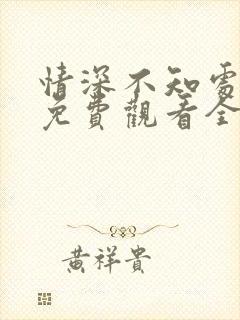 情深不知處
免費觀看全
黃祥貴